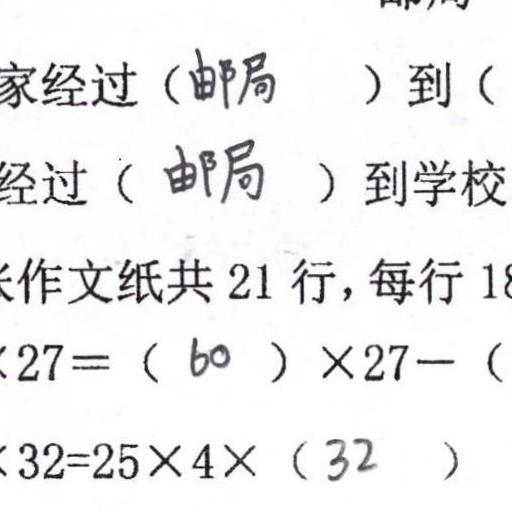 家经过（邮局）到（
经过（邮局）到学校
作文纸共21行，每行18
×27=（60）×27-（
×32=25×4×（32）